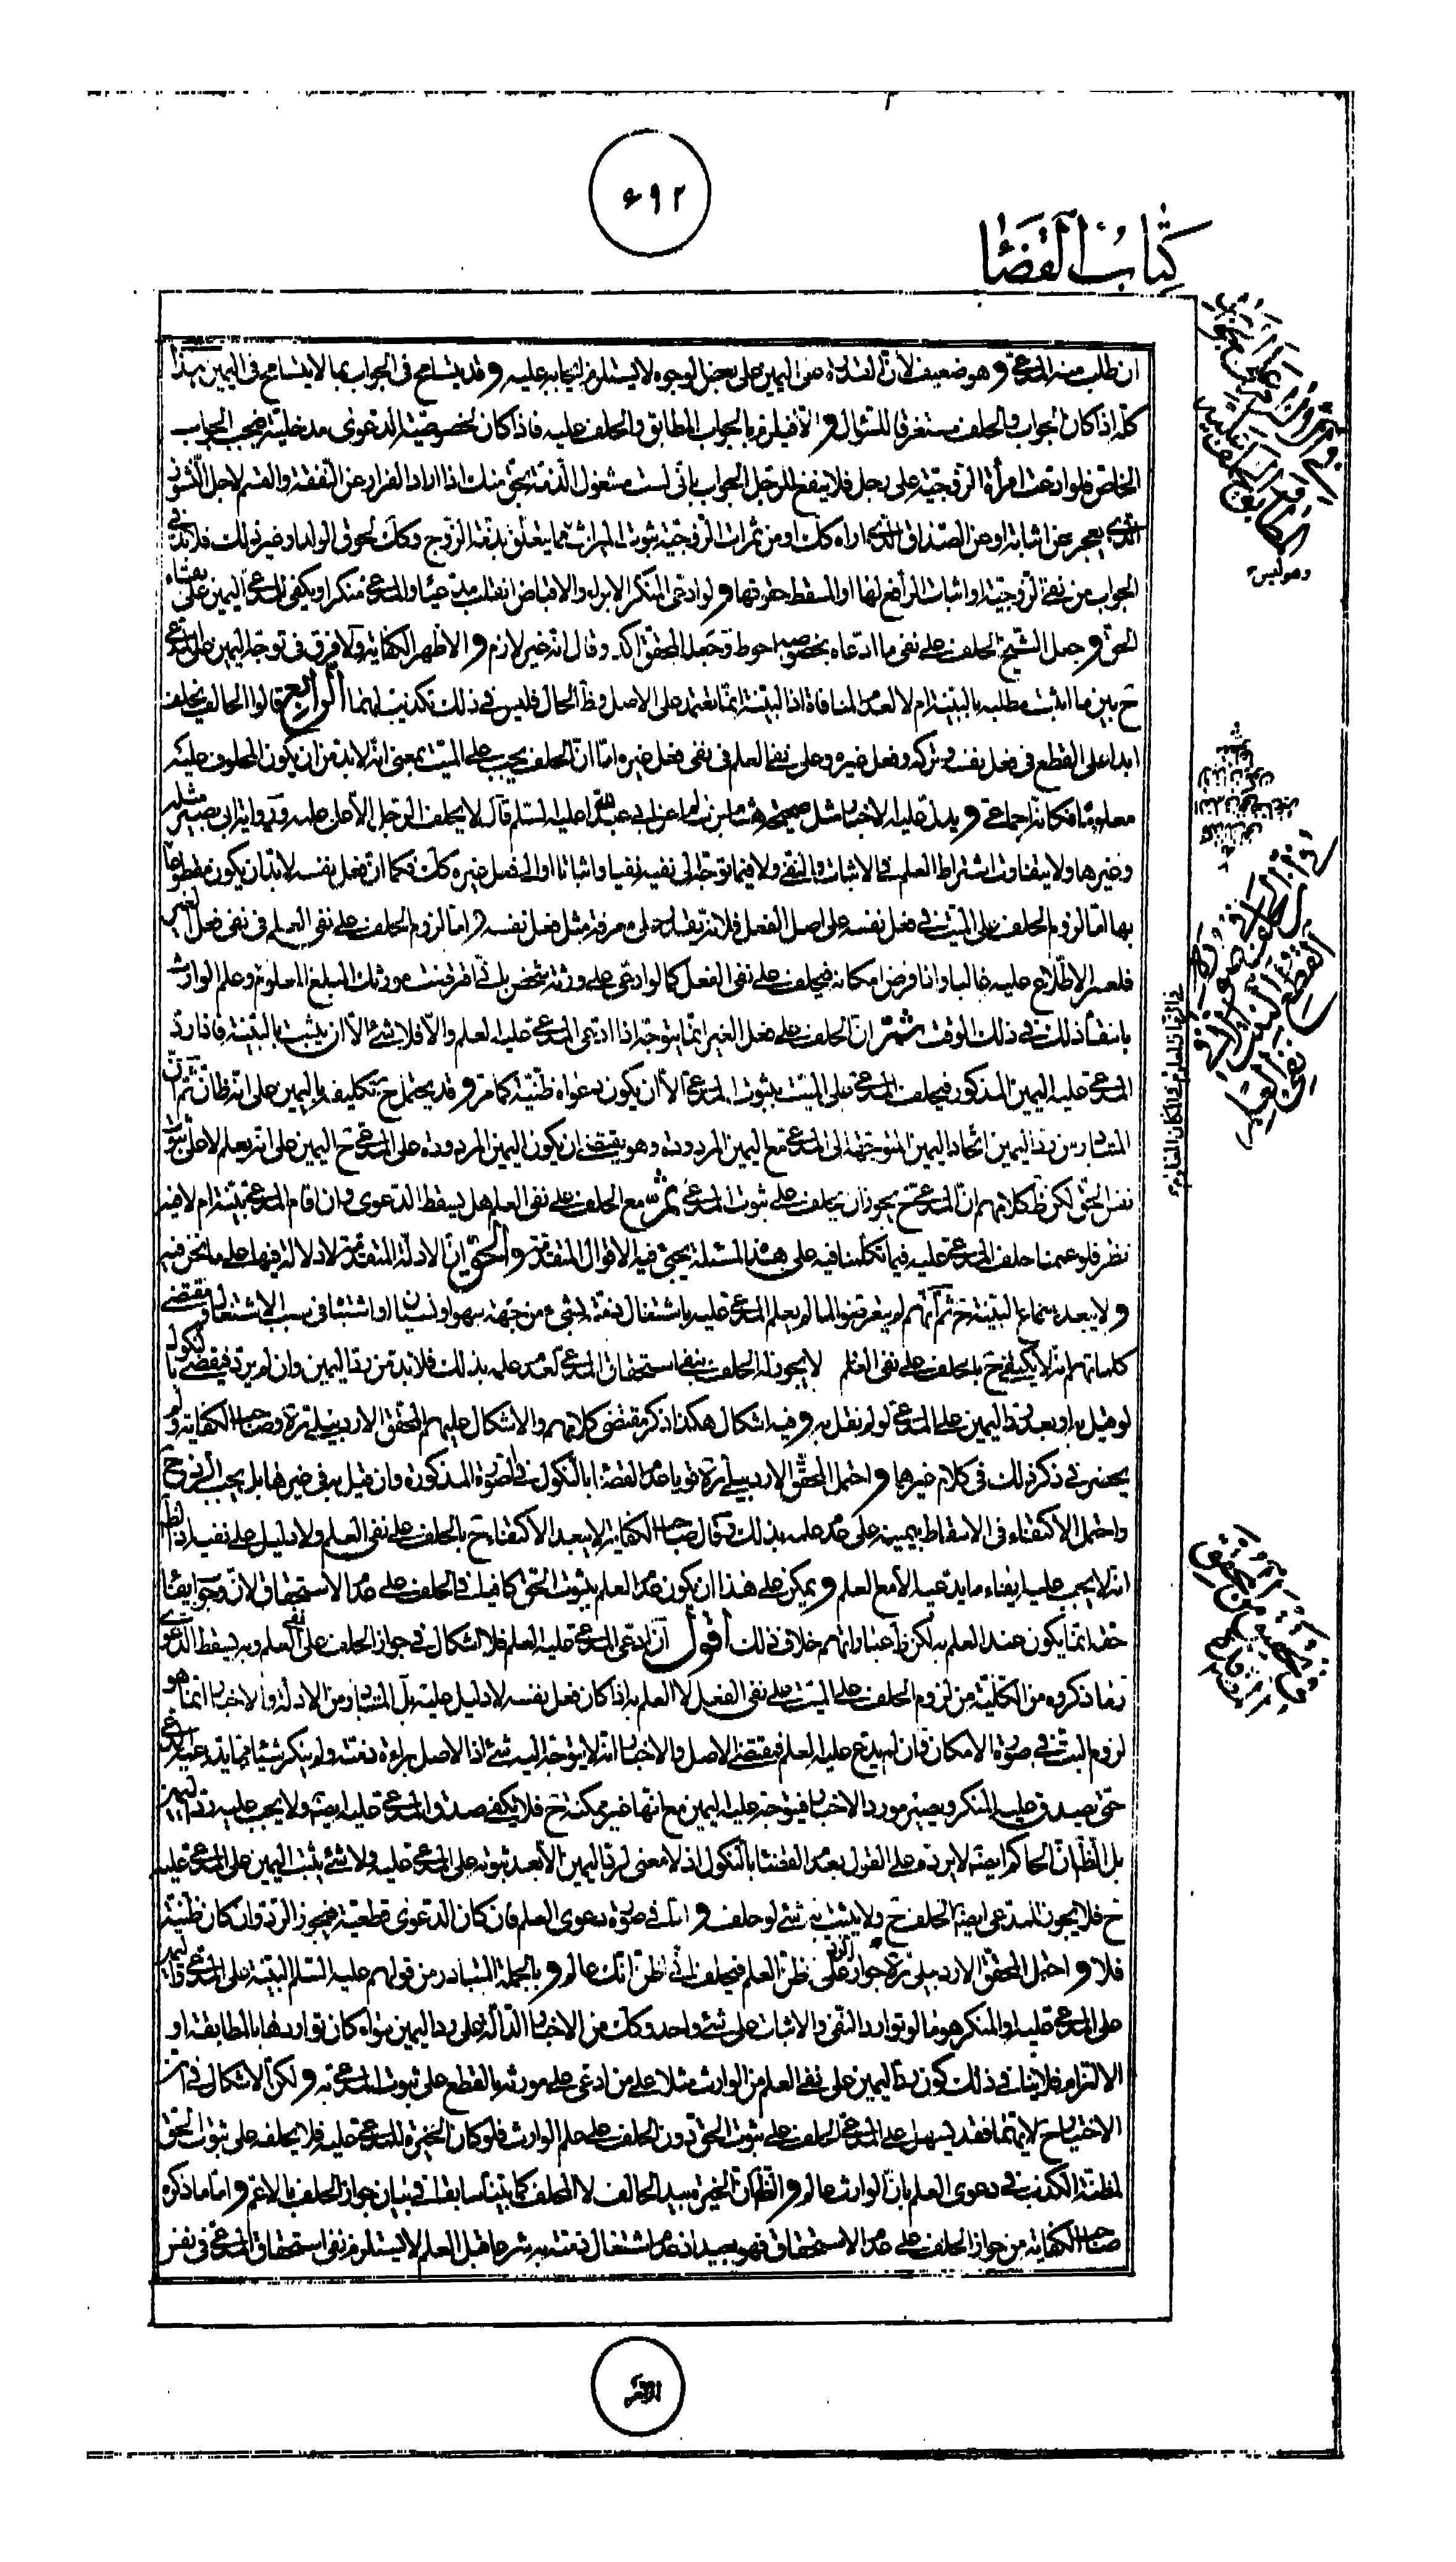 ۶۹۲
كتاب القضاء
ان طلب منه المدعى و هو ضعيف لأن القدرة على اليمين على بعض الوجوه لا يستلزم ايجابه عليه و قد يتسامح فى الجواب بما لا يتسامح فى اليمين هذا
كله اذا كان الجواب والحلف مستغرقا للسؤال و الا فيلزم بالجواب المطابق والحلف عليه فاذا كان لخصوصية الدعوى مدخلية فيجب الجواب
الخاص فلو ادعت امرأة الزوجية على رجل فلا ينفع للرجل الجواب بانى لست مشغول الذمة بحق منك اذا اراد الفرار عن النفقة والقسم لاجل النشوز
الذى يعجز عن اثباته او عن الصداق الذى اداه كك او من ثمرات الزوجية ثبوت الميراث مما يتعلق بذمة الزوج وكك لحوق الولد او غير ذلك فلا بد فى
الجواب من نفى الزوجية او اثبات الرافع لها او المسقط حقوقها و لو ادعى المنكر الابراء والاقباض انقلب مدعيا والمدعى منكرا ويكفى المدعى اليمين على بقاء
الحق و جعل الشيخ الحلف على نفى ما ادعاه بخصوصه احوط وجعل المحقق اكد وقال انه غير لازم و الاظهر الكفاية ولا فرق فى توجه اليمين على المدعى
ح بين ما اثبت مطلبه بالبينة ام لا لعدم المنافاة اذ البينة انما تعتمد على الاصل وظ الحال فليس فى ذلك تكذيب لهما الرابع قالوا الحالف يحلف
ابدا على القطع فى فعل نفسه وتركه وفعل غيره وعلى نفى العلم فى نفى فعل غيره اما ان الحلف يجب على البت بمعنى انه لا بد من ان يكون المحلوف عليه
معلوما فكانه اجماعى و يدل عليه الاخبار مثل صحيحة هشام بن سالم عن ابى عبد الله عليه السلم قال لا يحلف الرجل الا على علمه ورواية ابى بصير مثله
وغيرها ولا يتفاوت اشتراط العلم فى الاثبات والنفى ولا فيما توجه الى نفسه نفيا واثباتا او الى فعل غيره كك فكما ان فعل نفسه لا بد ان يكون مقطوعا
بها اما لزوم الحلف على البت فى فعل نفسه على اصل الفعل فلانه يقدر على معرفة مثل فعل نفسه و اما لزوم الحلف على نفى العلم فى نفى فعل الغير
فلعسر الاطلاع عليه غالبا واذا فرض امكانه فيحلف على نفى الفعل كما لو ادعى على ورثة شخص بانى اقرضت مورثك المبلغ المعلوم وعلم الوارث
بانتفاء ذلك فى ذلك الوقت ثم ان الحلف على فعل الغير انما يتوجه اذا ادعى المدعى عليه العلم والا فلا شئ الا ان يثبت بالبينة فاذا رد
المدعى عليه اليمين المذكور فيحلف المدعى على البت بثبوت المدعى الا ان يكون دعواه ظنية كما مر و قد يحتمل ح تكليفه باليمين على انه ظان ثم ان
المتبادر من رد اليمين اتحاد اليمين المتوجهة الى المدعى مع اليمين المردودة وهو يقتضى ان يكون اليمين المردودة على المدعى ح اليمين على انه يعلم لا على ثبوت
نفس الحق لكن ظ كلامهم ان المدعى ح يجوز ان يحلف على ثبوت المدعى ثم مع الحلف على نفى العلم هل يسقط الدعوى وان اقام المدعى بينة ام لا فيه
نظر فلو عممنا حلف المدعى عليه فيما تكلمنا فيه على هذه المسئلة يجئ فيه الاقوال المتقدمة والحق ان الادلة المتقدمة لا دلالة فيها على ما نحن فيه
و لا يبعد سماع البينة ح ثم انهم لم يتعرضوا لما لم يعلم المدعى عليه باشتغال ذمته بشئ من جهة سهو او نسيان او اشتباه فى سبب الاشتغال ومقتضى
كلماتهم انه لا يكتفى ح بالحلف على نفى العلم لا يجوز له الحلف بنفى استحقاق المدعى لعدم علمه بذلك فلا بد من رد اليمين وان لم يرد فيقضى بالنكول
لو قيل به او بعد رد اليمين على المدعى لو لم نقل به و فيه اشكال هكذا ذكر مقتضى كلامهم والاشكال عليهم المحقق الاردبيلى ره وصاحب الكفاية ولم
يحضرنى ذكر ذلك فى كلام غيرهما و احتمل المحقق الاردبيلى ره قويا عدم القضاء بالنكول فى الصورة المذكورة وان قيل به فى غيرها بل يجب الرد ح
واحتمل الاكتفاء فى الاسقاط بيمينه على عدم علمه بذلك وقال صاحب الكفاية لا يبعد الاكتفاء ح بالحلف على نفى العلم ولا دليل على نفيه اذ الظ
انه لا يجب عليه ايفاء ما يدعيه الا مع العلم و يمكن على هذا ان يكون عدم العلم بثبوت الحق كافيا فى الحلف على عدم الاستحقاق لان وجوب ايفاء
حقه انما يكون عند العلم به لكن ظ عباراتهم خلاف ذلك اقول ان ادعى المدعى عليه العلم فلا اشكال فى جواز الحلف على نفى العلم وبه يسقط الدعوى
وما ذكروه من الكلية من لزوم الحلف على البت على نفى الفعل لا العلم به اذا كان فعل نفسه لا دليل عليه بل المتبادر من الادلة والاخبار انما هو
لزوم البت فى صورة الامكان وان لم يدع عليه العلم فمقتضى الاصل والاخبار انه لا يتوجه اليه شئ اذ الاصل براءة ذمته ولم ينكر شيئا مما يدعيه المدعى
حتى يصدق عليه المنكر ويصير مورد الاخبار فيتوجه عليه اليمين مع انها غير ممكنة ح فلا يكفى صدق المدعى عليه ايضا ولا يجب عليه رد اليمين
بل الظ ان الحاكم ايضا لا يرده على القول بعدم القضاء بالنكول اذ لا معنى لرد اليمين الا بعد ثبوته على المدعى عليه ولا شئ يثبت اليمين على المدعى عليه
ح فلا يجوز للمدعى ايضا الحلف ح ولا يثبت به شئ لو حلف و اما فى صورة دعوى العلم فان كان الدعوى قطعية فيجوز الرد وان كان ظنية
فلا و احتمل المحقق الاردبيلى ره جواز الرد على ظن العلم فيحلف انى اظن انك عالم و بالجملة المتبادر من قولهم عليه السلم البينة على المدعى واليمين
على المدعى عليه او المنكر هو ما لو توارد النفى والاثبات على شئ واحد وكك من الاخبار الدالة على رد اليمين سواء كان تواردهما بالمطابقة او
الالتزام فلا ينافى ذلك كون رد اليمين على نفى العلم من الوارث مثلا على من ادعى على مورثه بالقطع على ثبوت المدعى به و لكن الاشكال فى ان
الاختيار ح لايهما فقد يسهل على المدعى الحلف على ثبوت الحق دون الحلف على علم الوارث فلو كان الخيرة للمدعى عليه فلا يحلفه على ثبوت الحق
لمظنة الكذب فى دعوى العلم بان الوارث عالم و الظ ان الخيرة بيد الحالف لا المحلف كما بينا سابقا فى بيان جواز الحلف بالاعم و اما ما ذكره
صاحب الكفاية من جواز الحلف على عدم الاستحقاق فهو بعيد اذ عدم اشتغال ذمته به شرعا قبل العلم لا يستلزم نفى استحقاق المدعى فى نفس
الامر